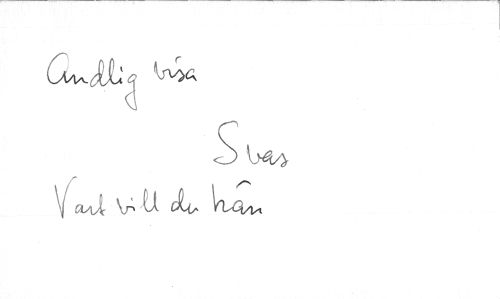 Andlig visa
Svar
Vart vill du hän